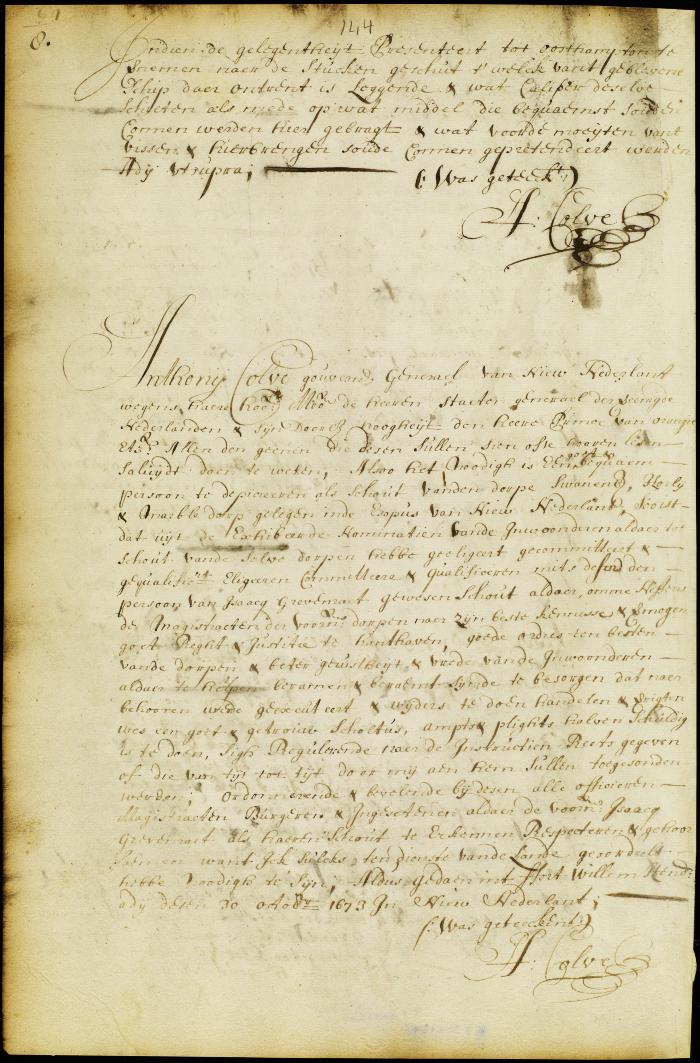 144
8.
Indien de gelegentheyt Presenteert tot oosthampton te
vernemen naer de stucken geschut t'welck vant geblevene
Schip daer ontrent is Leggende & wat Caliber deselve
schieten als mede op wat middel die bequaemst souden
Connen werden hier gebragt & wat voor de moeyten vant
vissen & hierbrengen soude Connen gepretendeert werden
Ady utsupra;
(: Was geteeckt:)
A: Colve
Anthony Colve gouvernr. Generael van Niew Nederlant
wegens haere hoog Mo: de heeren staeten generael der vereenigde
Nederlanden & syn Doorl: hoogheyt den heere Prince van orangie
Etca. Allen den geenen die desen sullen sien ofte hooren lesen
Saluyt doen te weten, Alsoo het noodigh is Een bequaem
persoon te deputeeren als Schout vanden dorpe Swanenb, Horly
& Marble dorp gelegen inde Esopus van Niew Nederlant, Soo ist
dat uyt de Exhibeerde Nominatien vande Inwoonderen aldaer tot
schout vande selve dorpen hebbe geeligeert gecommitteert &
gequalificrt. Eligeeren Committeere & Qualificeren mits desen den
persoon van Isaacq Grevenraet gewesen Schout aldaer, omme Neffens
de Magistraeten der voorn: dorpen naer zyn beste kennisse & vermogen
goet Reght & Justitie te hanthaven, goede ordres ten besten
vande dorpen & beter gerustheyt & vrede vande Inwoonderen
aldaer te helpen beramen & beraemt synde te besorgen dat naer
behooren werde geexecuteert & wyders te doen handelen & verrigten
wes een goet & getrouw Scholtus, ampts & plights halven schuldig
is te doen, sigh Regulerende naer de Instructien Reets gegeven
of die van tyt tot tyt door my aen hem sullen toegesonden
werden; ordonneerende & bevelende by desen alle officieren
Magistraeten Burgeren & Ingesetenen aldaer de voorn: Isaacq
Grevenraet als haeren Schout te Erkennen Respecteren & gehoor
saemen want Ick sulcks ten dienste vande Lande geoordeelt
hebbe noodigh te syn; Aldus gedaen int fort Willem Hendr:
ady desen 30 octobr 1673 In Niew Nederlant;
(: Was geteeckent:)
A: Colve